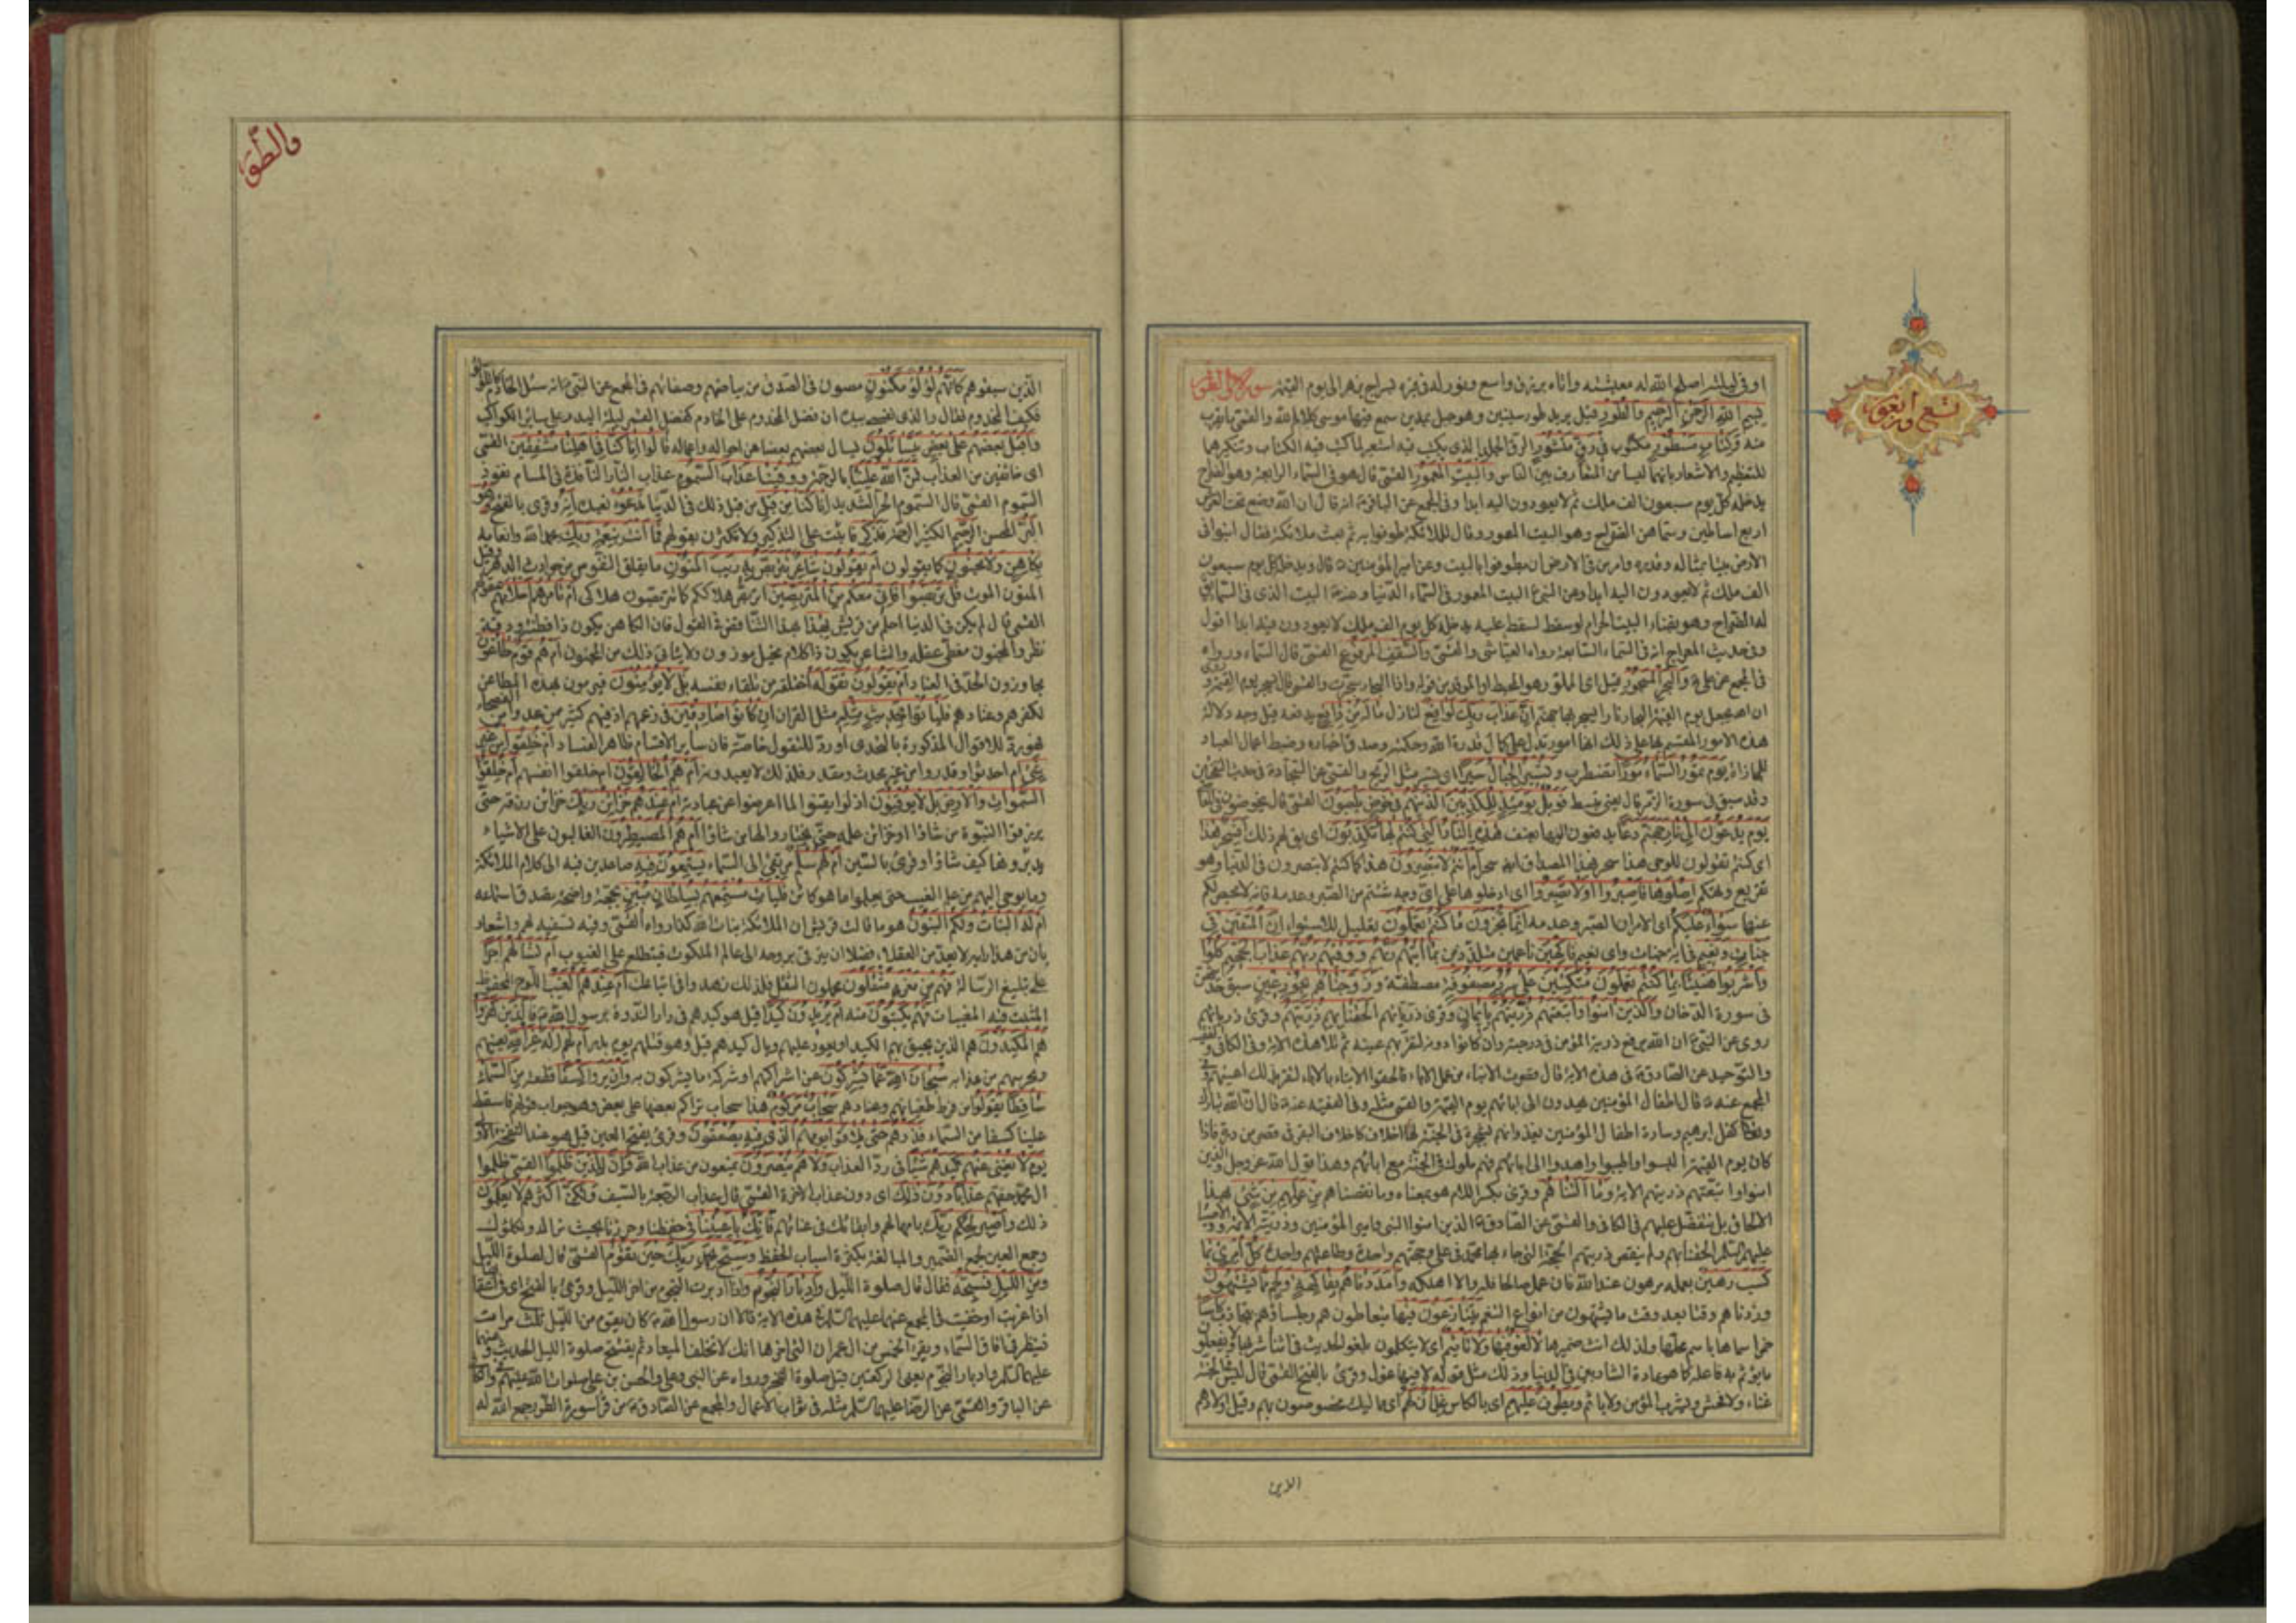 او في ليله اصلح الله له معيشته واتاه برزق واسع ونور له في قبره بسراج يزهر الى يوم القيمة سورة والطور
بسم الله الرحمن الرحيم والطور قيل يريد طور سينين وهو جبل بمدين سمع فيها موسى كلام الله والقمي
وكتاب مسطور مكتوب في رق منشور الرق الجلد الذي يكتب فيه استعير لما كتب فيه الكتاب وتنكيرهما
للتعظيم والاشعار بانهما ليسا من المتعارف بين الناس والبيت المعمور القمي قال هو في السماء الرابعة وهو الضراح
يدخله كل يوم سبعون الف ملك ثم لا يعودون اليه ابدا وفي المجمع عن الباقر انه قال ان الله وضع تحت العرش
اربع اساطين وسماهن الضراح وهو البيت المعمور وقال للملائكة طوفوا به ثم بعث ملائكة فقال ابنوا في
الارض بيتا بمثاله وقدره وامر من في الارض ان يطوفوا بالبيت وعن امير المؤمنين قال ويدخله كل يوم سبعون
الف ملك ثم لا يعودون اليه ابدا وعن النبي البيت المعمور في السماء الدنيا وعنه البيت الذي في السماء
له الضراح وهو بفناء البيت الحرام لو سقط لسقط عليه يدخله كل يوم الف ملك لا يعودون فيه ابدا اقول
وفي حديث المعراج انه في السماء السابعة رواه العياشي والقمي والسقف المرفوع القمي قال السماء ورواه
في المجمع عن علي والبحر المسجور قيل اى المملو وهو المحيط او الموقد من قوله واذا البحار سجرت والقمي قال يسجر يوم القيمة
ان الله يجعل يوم القيمة البحار نارا يسجر بها جهنم ان عذاب ربك لواقع لنازل ما له من دافع يدفعه قيل وجه دلالة
هذه الامور المقسم بها على ذلك انها امور تدل على كمال قدرة الله وحكمته وصدق اخباره وضبط اعمال العباد
للمجازاة يوم تمور السماء مورا تضطرب وتسير الجبال سيرا اى تسير مثل الريح والقمي عن السجاد
وقد سبق في سورة الزمر قال يعني تبسط فويل يومئذ للمكذبين الذين هم في خوض يلعبون القمي قال يخوضون في المعاصي
يوم يدعون الى نار جهنم دعا يدفعون اليها بعنف هذه النار التي كنتم بها تكذبون اى يقال لهم ذلك افسحر هذا
اى كنتم تقولون للوحي هذا سحر فهذا المصداق ايضا سحر ام انتم لا تبصرون هذا كما كنتم لا تبصرون في الدنيا وهو
تقريع وتهكم اصلوها فاصبروا او لا تصبروا اى ادخلوها على اى وجه شئتم من الصبر وعدمه فانه لا محيص لكم
عنها سواء عليكم اى الامران الصبر وعدمه انما تجزون ما كنتم تعملون تعليل للاستواء ان المتقين في
جنات ونعيم في اية جنات واى نعيم فاكهين ناعمين متلذذين بما اتيهم ربهم ووقيهم ربهم عذاب الجحيم كلوا
واشربوا هنيئا بما كنتم تعملون متكئين على سرر مصفوفة مصطفة وزوجناهم بحور عين سبق تحقيقه
في سورة الدخان والذين امنوا واتبعتهم ذريتهم بايمان وقرئ ذرياتهم الحقنا بهم ذريتهم وقرئ ذرياتهم
روى عن النبي ان الله يرفع ذرية المؤمن في درجته وان كانوا دونه لتقر بهم عينه ثم تلا هذه الاية وفي الكافي والفقيه
والتوحيد عن الصادق في هذه الاية قال قصرت الابناء عن عمل الاباء فالحقوا الابناء بالاباء لتقر بذلك اعينهم وفي
المجمع عنه قال اطفال المؤمنين يهدون الى ابائهم يوم القيمة والقمي مثله وفي الفقيه عنه قال ان الله تبارك
وتعالى كفل ابراهيم وسارة اطفال المؤمنين يغذوانهم بشجرة في الجنة لها اخلاف كاخلاف البقر في قصر من درة فاذا
كان يوم القيمة البسوا واطيبوا واهدوا الى ابائهم فهم ملوك في الجنة مع ابائهم وهذا قول الله عز وجل والذين
امنوا واتبعتهم ذريتهم الاية وما التناهم وقرئ بكسر اللام هو بمعناه وما نقصناهم من عملهم من شيء بهذا
الالحاق بل نتفضل عليهم في الكافي والقمي عن الصادق الذين امنوا النبي وامير المؤمنين وذريته الائمة والاوصياء
عليهم السلم الحقنا بهم ولم ننقص ذريتهم الحجة التي جاء بها محمد في علي وحجتهم واحدة وطاعتهم واحدة كل امرئ بما
كسب رهين بعمله مرهون عند الله فان عمل صالحا فكه والا اهلكه وامددناهم بفاكهة ولحم مما يشتهون
وزدناهم وقتا بعد وقت ما يشتهون من انواع التنعم يتنازعون فيها يتعاطون هم وجلساؤهم بتجاذب كاسا
خمرا سماها باسم محلها ولذلك انث ضميرها لا لغو فيها ولا تاثيم اى لا يتكلمون بلغو الحديث في اثناء شربها ولا يفعلون
ما يؤثم به فاعله كما هو عادة الشاربين في الدنيا وذلك مثل قوله لا فيها غول وقرئ بالفتح القمي قال ليس في الجنة
غناء ولا فحش ويشرب المؤمن ولا ياثم ويطوف عليهم اى بالكاس غلمان لهم اى مماليك مخصوصون بهم وقيل اولادهم
تسع واربعون
الذين
والطور
الذين سبقوهم كانهم لؤلؤ مكنون مصون في الصدف من بياضهم وصفائهم في المجمع عن النبي انه سئل الخادم كاللؤلؤ
فكيف المخدوم فقال والذي نفسي بيده ان فضل المخدوم على الخادم كفضل القمر ليلة البدر على ساير الكواكب
واقبل بعضهم على بعض يتسائلون يسال بعضهم بعضا عن احواله واعماله قالوا انا كنا قبل في اهلنا مشفقين القمي
اى خائفين من العذاب فمن الله علينا بالرحمة ووقينا عذاب السموم عذاب النار النافذة في المسام نفوذ
السموم القمي قال السموم الحر الشديد انا كنا من قبل من قبل ذلك في الدنيا ندعوه نعبده انه وقرئ بالفتح هو
البر المحسن الرحيم الكثير الرحمة فذكر فاثبت على التذكير ولا تكترث بقولهم فما انت بنعمة ربك بحمد الله وانعامه
بكاهن ولا مجنون كما يقولون ام يقولون شاعر نتربص به ريب المنون ما يقلق النفوس من حوادث الدهر وقيل
المنون الموت قل تربصوا فاني معكم من المتربصين اتربص هلاككم كما تتربصون هلاكي ام تامرهم احلامهم عقولهم
القمي قال لم يكن في الدنيا احلم من قريش بهذا بهذا التناقض في القول فان الكاهن يكون ذا فطنة ودقة
نظر والمجنون مغطى عقله والشاعر يكون ذا كلام مخيل موزون ولا يتاتى ذلك من المجنون ام هم قوم طاغون
مجاوزون الحد في العناد ام يقولون تقوله اختلقه من تلقاء نفسه بل لا يؤمنون فيرمون بهذه المطاعن
لكفرهم وعنادهم فلياتوا بحديث مثله مثل القران ان كانوا صادقين في زعمهم اذ فيهم كثير ممن عدوا من الفصحاء
فهو رد للاقوال المذكورة بالتحدى او رد للتقول خاصة فان ساير الاقسام ظاهر الفساد ام خلقوا من غير
شيء ام احدثوا وقدروا من غير محدث ومقدر فلذلك لا يعبدونه ام هم الخالقون ام خلقوا انفسهم ام خلقوا
السموات والارض بل لا يوقنون اذ لو ايقنوا لما اعرضوا عن عبادته ام عندهم خزائن ربك خزائن رزقه حتى
يرزقوا النبوة من شاؤا او خزائن علمه حتى يختاروا لها من شاؤا ام هم المصيطرون الغالبون على الاشياء
يدبرونها كيف شاؤا وقرئ بالسين ام لهم سلم مرتقى الى السماء يستمعون فيه صاعدين فيه الى كلام الملائكة
وما يوحى اليهم من علم الغيب حتى يعلموا ما هو كائن فليات مستمعهم بسلطان مبين بحجة واضحة تصدق استماعه
ام له البنات ولكم البنون هو ما قالت قريش ان الملائكة بنات الله كذا رواه القمي وفيه تسفيه لهم واشعار
بان من هذا رايه لا يعد من العقلاء فضلا ان يترقى بروحه الى عالم الملكوت فيتطلع على الغيوب ام تسئلهم اجرا
على تبليغ الرسالة فهم من مغرم مثقلون محملون الثقل فلذلك زهدوا في اتباعك ام عندهم الغيب اللوح المحفوظ
المثبت فيه المغيبات فهم يكتبون منه ام يريدون كيدا قيل هو كيدهم في دار الندوة برسول الله فالذين كفروا
هم المكيدون هم الذين يحيق بهم الكيد او يعود عليهم وبال كيدهم قيل وهو قتلهم يوم بدر ام لهم اله غير الله يعينهم
ويحرسهم من عذابه سبحان الله عما يشركون عن اشراكهم او شركة ما يشركون به وان يروا كسفا قطعة من السماء
ساقطا يقولوا من فرط طغيانهم وعنادهم سحاب مركوم هذا سحاب تراكم بعضها على بعض وهو جواب قولهم فاسقط
علينا كسفا من السماء فذرهم حتى يلاقوا يومهم الذي فيه يصعقون وقرئ بفتح العين قيل هو عند النفخة الاولى
يوم لا يغني عنهم كيدهم شيئا في رد العذاب ولا هم ينصرون يمنعون من عذاب الله وان للذين ظلموا القمي ظلموا
ال محمد حقهم عذابا دون ذلك اى دون عذاب الاخرة القمي قال عذاب الرجعة بالسيف ولكن اكثرهم لا يعلمون
ذلك واصبر لحكم ربك بامهالهم وابقائك في عنائهم فانك باعيننا في حفظنا وحرزنا بحيث نراك ونكلؤك
وجمع العين لجمع الضمير والمبالغة بكثرة اسباب الحفظ وسبح بحمد ربك حين تقوم القمي قال لصلوة الليل
ومن الليل فسبحه فقال قال صلوة الليل وادبار النجوم واذا ادبرت النجوم من اخر الليل وقرئ بالفتح اى في اعقابها
اذا غربت او خفيت في المجمع عنهما عليهما السلام في هذه الاية قالا ان رسول الله كان يقوم من الليل ثلث مرات
فينظر في افاق السماء ويقرء الخمس من ال عمران التي اخرها انك لا تخلف الميعاد ثم يفتتح صلوة الليل الحديث وعنهما
عليهما السلم وادبار النجوم يعني الركعتين قبل صلوة الفجر ورواه عن النبي وعلي والحسن بن علي صلوات الله عليهم وفي الكافي
عن الباقر والقمي عن الرضا عليهما السلم مثله في ثواب الاعمال والمجمع عن الصادق من قرأ سورة الطور جمع الله له